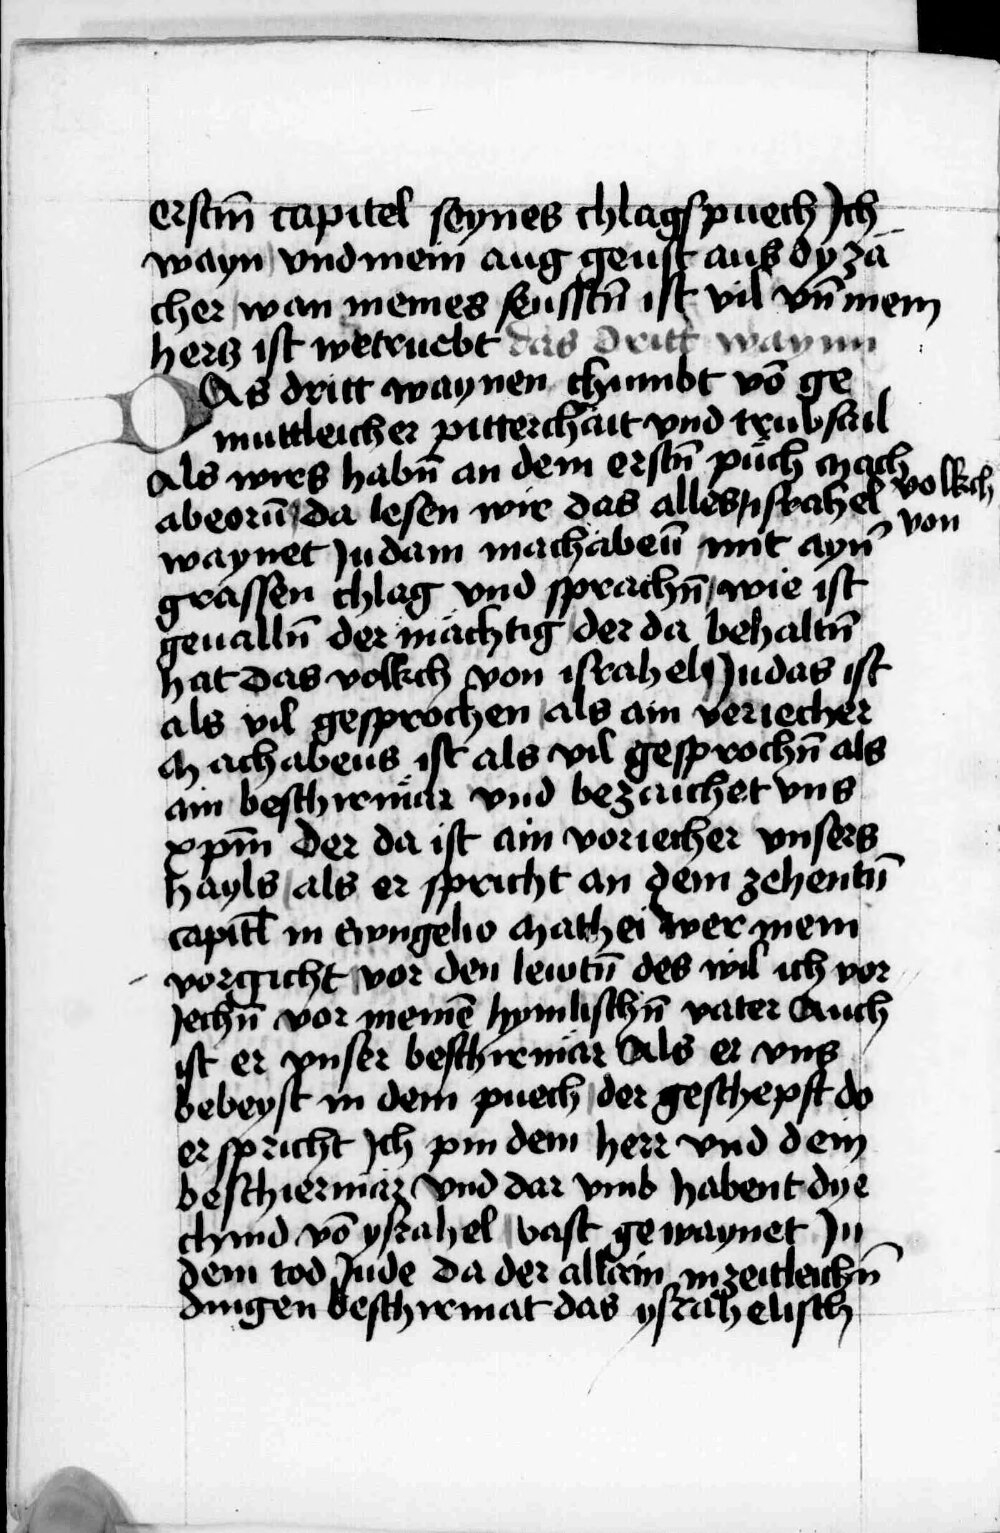 erstn̄ capitel seynes chlagspuech Ich
wayn vnd mein aug geust aus dy zä
cher wan meines seufftn̄ ist vil vn̄ mein
hertz ist wetruebt das dritt waynn
DAs dritt waynen chumbt vō ge
muttleicher pitterchait vnd trubsail
Als wirs habn̄ an dem erstn̄ püch Mach
abeorū da lesen wir das alles israhel volkch von
waynet Judam machabeū mit ayn̄
grassen chlag vnd sprachn̄ wie ist
geualln̄ der mächtig der da behaltn̄
hat das volkch von israhel Judas ist
als vil gesprochen als ain veriecher
Machabeus ist als vil gesprochn̄ als
ain beschirmär vnd bezaichet vns
xpm̄ Der da ist ain voriecher vnsers
hayls als er spricht an dem zehentn̄
capitl̄ in Ewngelio Mathei Wer mein
vorgicht vor den lewtn̄ des wil ich vor
Jechn̄ vor meinē hymlischn̄ vater Auch
ist er vnser beschirmär Als er vns
bebeyst in dem puech der geschepft do
er spricht Ich pin dein herr vnd dein
beschiermär vnd dar vmb habent dye
chind vō ysrahel vast gewaynet In
dem tod Jude da der allain in zeitleichn̄
dingen beschirmat das ysrahelisch